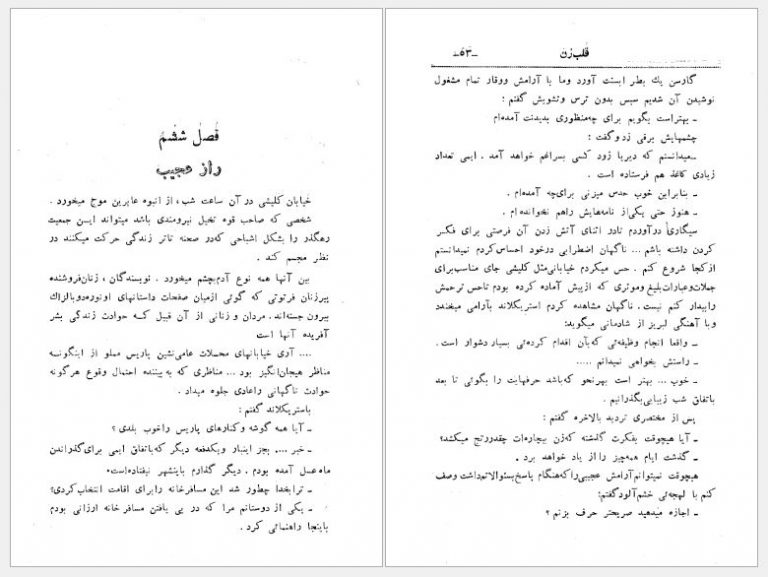 قلب زن
ـ ۵۳ ـ
گارسن یك بطر ابسنت آورد وما با آرامش ووقار تمام مشغول
نوشیدن آن شدیم سپس بدون ترس وتشویش گفتم :
ـ بهتراست بگویم برای چه‌منظوری بدیدنت آمده‌ام
چشمهایش برقی زد وگفت :
ـ میدانستم که دیریا زود کسی بسراغم خواهد آمد . ایمی تعداد
زیادی کاغذ هم فرستاده است .
ـ بنابراین خوب حدس میزنی برای‌چه آمده‌ام .
ـ هنوز حتی یکی‌از نامه‌هایش راهم نخوانده‌ام .
سیگاری درآوردم تادر اثنای آتش زدن آن فرصتی برای فکر
کردن داشته باشم ... ناگهان اضطرابی درخود احساس‌کردم نمیدانستم
ازکجا شروع کنم . حس میکردم خیابانی‌مثل کلیشی جای مناسب‌برای
جملات‌وعبارات‌بلیغ وموثری که ازپیش آماده کرده بودم تاحس ترحمش
رابیدار کنم نیست . ناگهان مشاهده کردم استریکلاند بآرامی میخندد
وبا آهنگی لبریز از شادمانی میگوید:
ـ واقعا انجام وظیفه‌ئی که‌بآن اقدام کرده‌ئی بسیار دشوار است .
ـ راستش بخواهی نمیدانم .....
ـ خوب ... بهتر است بهرنحو که‌باشد حرفهایت را بگوئی تا بعد
باتفاق شب زیبایی‌بگذرانیم .
پس از مختصری تردید بالاخره گفتم :
ـ آیا هیچوقت بفکرت گذشته که‌زن بیچاره‌ات چقدررنج میکشد؟
ـ گذشت ایام همه‌چیز را از یاد خواهد برد .
هیچوقت نمیتوانم‌آرامش عجیبی‌راکه‌هنگام پاسخ‌بسئوالاتم‌داشت وصف
کنم با لهجه‌ئی خشم‌آلودگفتم:
ـ اجازه میدهید صریحتر حرف بزنم ؟
فصل ششم
راز عجیب
خیابان کلیشی در آن ساعت شب، از انبوه عابرین موج میخورد .
شخصی که صاحب قوه تخیل نیرومندی باشد میتواند ایسن جمعیت
رهگذر را بشکل اشباحی که‌در صحنه تاتر زندگی حرکت میکنند در
نظر مجسم کند .
بین آنها همه نوع آدم‌بچشم میخورد . نویسندگان ، زنان‌فروشنده
پیرزنان فرتوتی که گوئی ازمیان صفحات داستانهای اونوره‌دوبالزاك
بیرون جسته‌اند. مردان و زنانی از آن قبیل کــه حوادث زندگی بشر
آفریده آنها است
.... آری خیابانهای محسلات عامی‌نشین پاریس مملو از اینگونسه
مناظر هیجان‌انگیز بود ... مناظری که به‌بیننده احتمال وقوع هرگونه
حوادث ناگهانی راعادی جلوه میداد .
باستریکلاند گفتم :
ـ آیا همه گوشه وکنارهای پاریس راخوب بلدی ؟
ـ خیر .... بجز اینبار ویکدفعه دیگر که‌باتفاق ایمی برای‌گذراندن
ماه‌عسل آمده بودم . دیگر گذارم باینشهر نیفتاده‌است.
ـ ترابخدا چطور شد این مسافرخانه رابرای اقامت انتخاب‌کردی؟
ـ یکی از دوستانم مرا که در پی یافتن مسافر خانه ارزانی بودم
باینجا راهنمائی کرد .